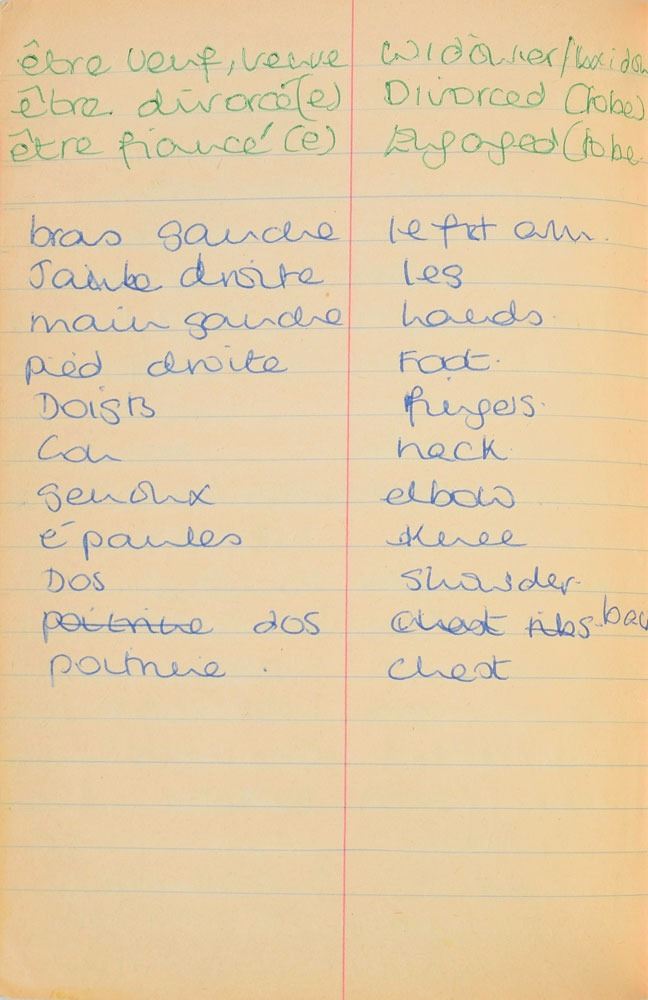 être veuf, veuve Widower/Widow
être divorcé(e) Divorced (tobe)
être fiancé (e) Engaged (tobe
bras gauche left arm.
Jambe droite leg
main gauche hands.
pied droite Foot.
Doigts fingers.
Cou neck
genoux elbow
épaules Knee
Dos Shoulder.
poitrine dos chest ribs. bac
poitrine . chest